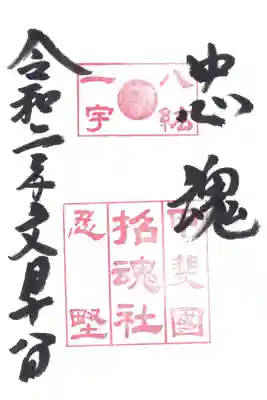 忠魂
八紘
一宇
甲斐國
招魂社
忍野
令和二年文月